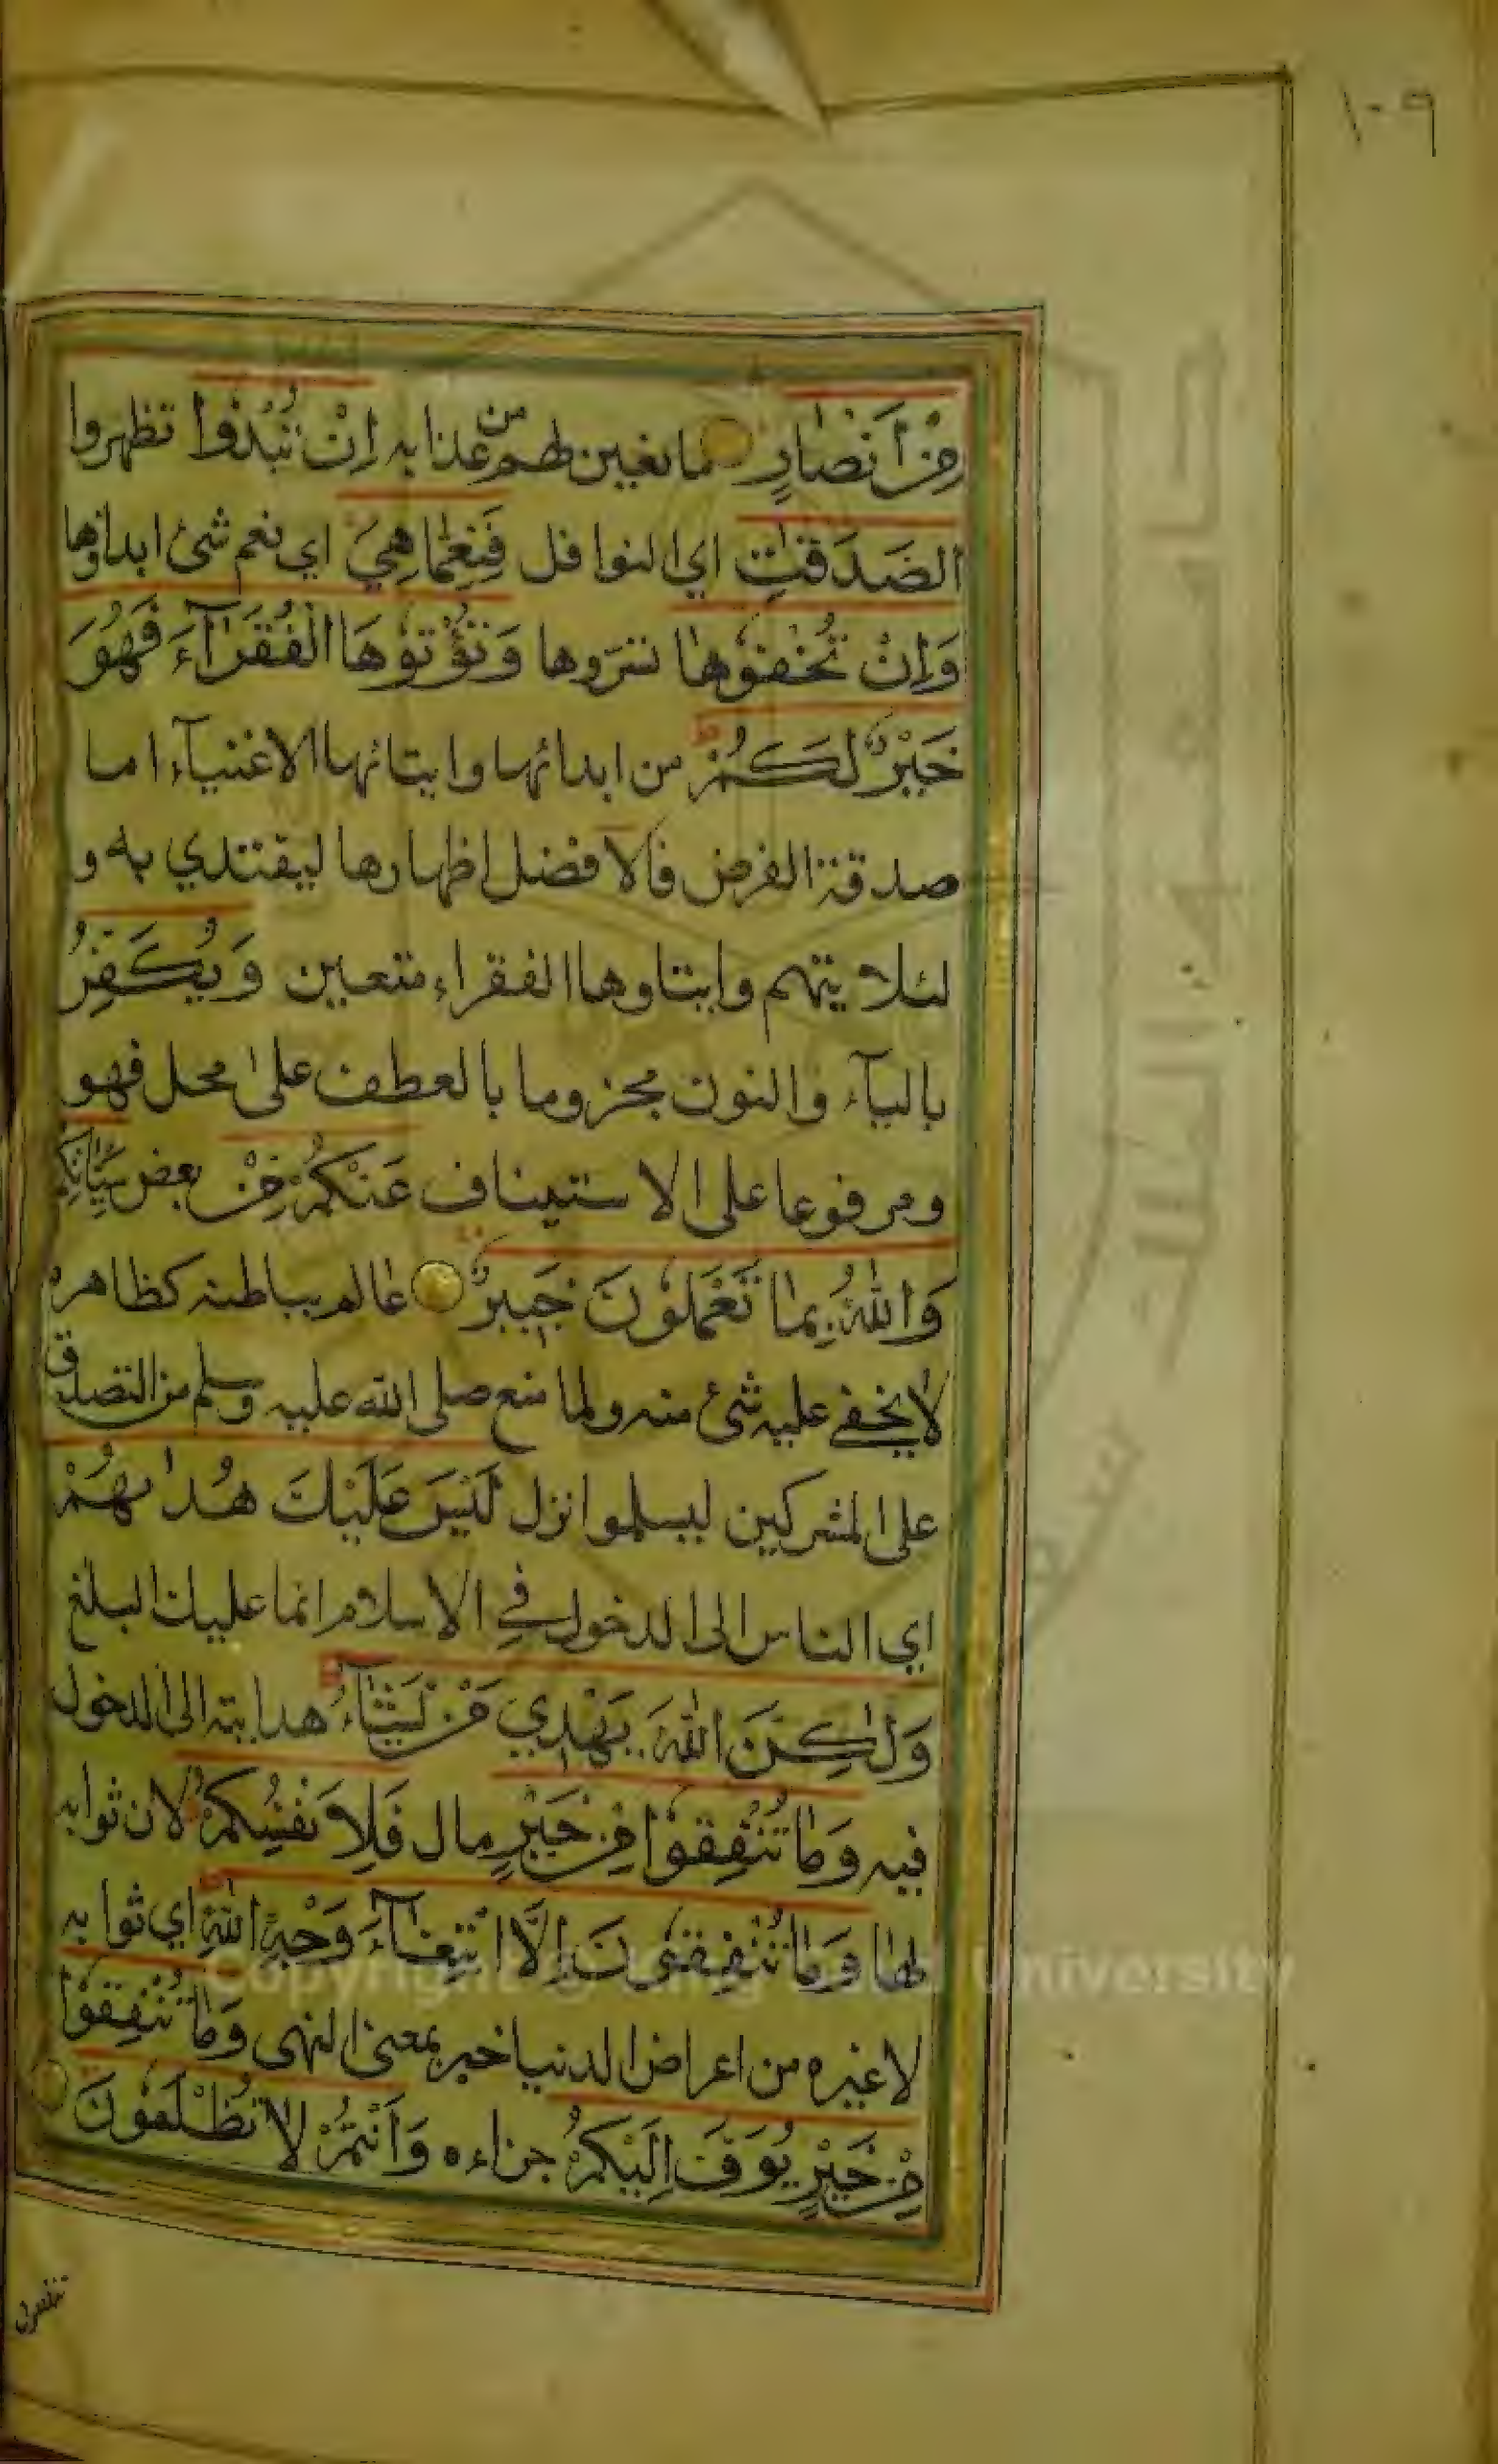 ١٠٩
مِنْ أَنْصَارٍ مانعين لهم من عذابه اِنْ تُبْدُوا تظهروا
الصَدَقٰتِ اي النوافل فَنِعِمَّا هِيَ اي نعم شئ ابداؤها
وَاِنْ تُخْفُوْهَا تسرّوها وَتُؤْتُوْهَا الْفُقَرَآءَ فَهُوَ
خَيْرٌ لَكُمْ من ابدائها وايتائها الاغنيآء اما
صدقة الفرض فالافضل اظهارها ليقتدي به و
لئلا يتهم وايتاوها الفقراء متعين وَيُكَفِّرُ
باليآء والنون مجزوما بالعطف على محل فهو
ومرفوعا على الاستيناف عَنْكُمْ مِنْ بعض سَيِّاٰتِكُمْ
وَاللهُ بِمَا تَعْمَلُوْنَ خَبِيرٌ عالم بباطنه كظاهره
لا يخفى عليه شئ منه ولما منع صلى الله عليه وسلم من التصدق
على المشركين ليسلموا نزل لَيْسَ عَلَيْكَ هُدٰىهُمْ
اي الناس الى الدخول في الاسلام انما عليك البلغ
وَلٰكِنَّ اللهَ يَهْدِي مَنْ يَشَآءُ هدايته الى الدخول
فيه وَمَا تُنْفِقُوْا مِنْ خَيْرٍ مال فَلِاَنْفُسِكُمْ لان ثوابه
لها وَمَا تُنْفِقُوْنَ اِلَّا ابْتِغَآءَ وَجْهِ اللهِ اي ثوابه
لا غيره من اعراض الدنيا خبر بمعنى النهى وَمَا تُنْفِقُوْا
مِنْ خَيْرٍ يُوَفَّ اِلَيْكُمْ جزاءه وَاَنْتُمْ لَا تُظْلَمُوْنَ
Copyright © King Saud University